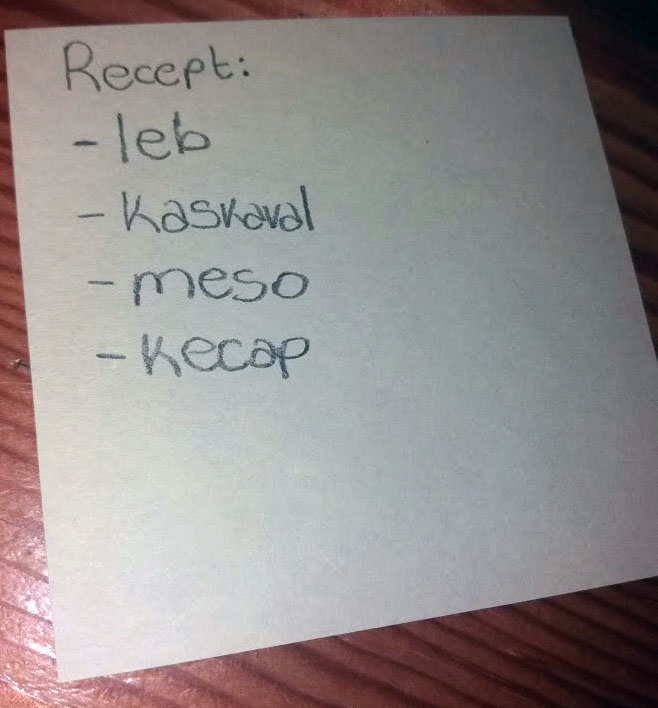 Recept:
- leb
- kaskaval
- meso
- kecap